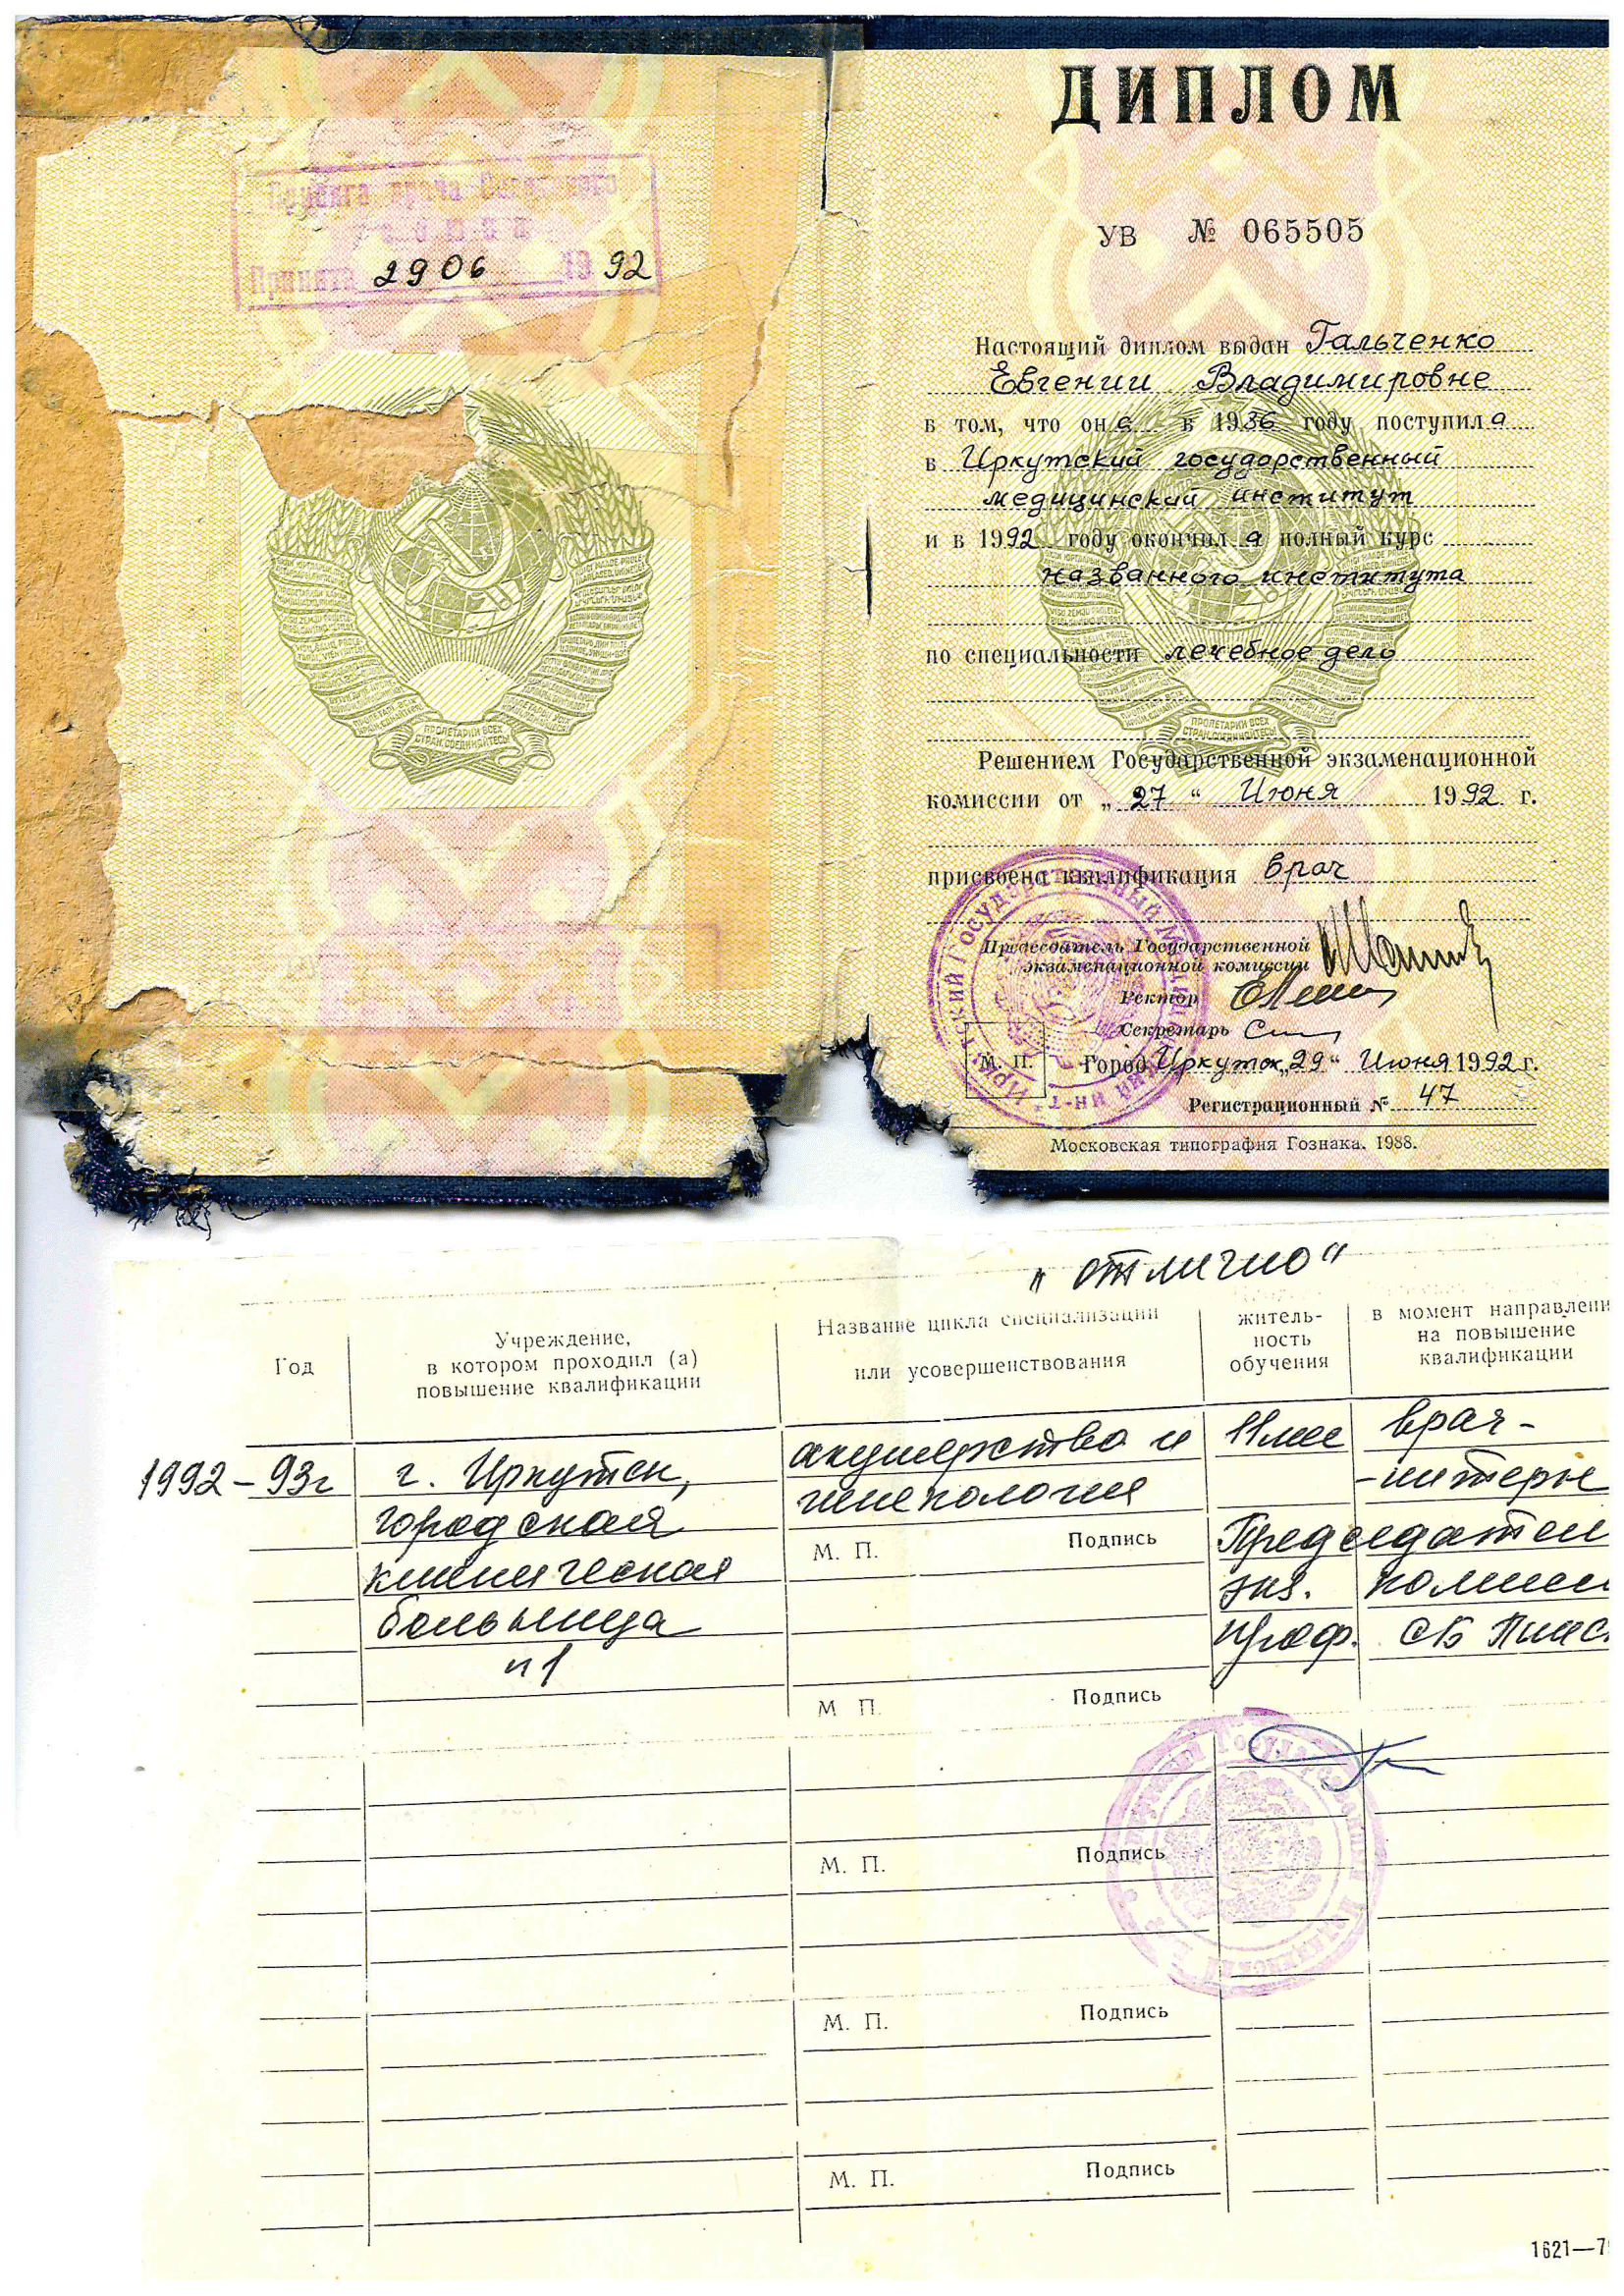 Присяга врача Советского
Союза
Принята 29 06 19 92
ПРОЛЕТАРИИ ВСЕХ
СТРАН, СОЕДИНЯЙТЕСЬ!
ДИПЛОМ
УВ № 065505
Настоящий диплом выдан Гальченко
Евгении Владимировне
в том, что она в 1986 году поступила
в Иркутский государственный
медицинский институт
и в 1992 году окончила полный курс
названного института
по специальности лечебное дело
ПРОЛЕТАРИИ ВСЕХ
СТРАН, СОЕДИНЯЙТЕСЬ!
Решением Государственной экзаменационной
комиссии от „27“ Июня 1992 г.
присвоена квалификация врач
Председатель Государственной
экзаменационной комиссии
Ректор
Секретарь
М. П. Город Иркутск „29“ Июня 1992 г.
Регистрационный № 47
Московская типография Гознака. 1988.
„отлично“
Год
Учреждение,
в котором проходил (а)
повышение квалификации
Название цикла специализации
или усовершенствования
житель-
ность
обучения
в момент направлени
на повышение
квалификации
1992-93г
г. Иркутск,
городская
клиническая
больница
№1
акушерство и
гинекология
11 мес
врач-
-интерн
М. П. Подпись
Председател
экз. комисси
проф.
М П. Подпись
М. П. Подпись
М. П. Подпись
М. П. Подпись
1621—7